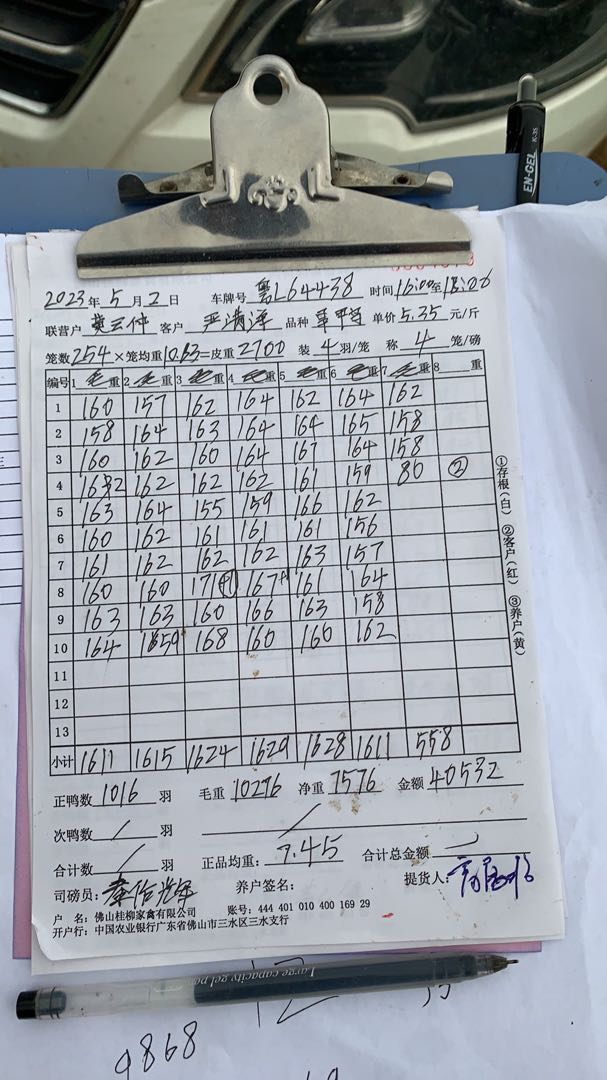 EN-GEL K-35
2023年5月2日 车牌号 粤L64438 时间16:00至18:06
联营户 黄三仲 客户 严满洋 品种 单价5.35元/斤
笼数254×笼均重10.63=皮重2700 装4羽/笼 称4笼/磅
编号 1毛重 2毛重 3毛重 4毛重 5毛重 6毛重 7毛重 8 重
1 160 157 162 164 162 164 162
2 158 164 163 164 164 165 158
3 160 162 160 164 167 164 158
4 162 162 162 162 161 159 80 ②
5 163 164 155 159 166 162
6 160 162 161 161 161 156
7 161 162 162 162 163 157
8 160 160 171 167 161 164
9 163 163 160 166 163 158
10 164 159 168 160 160 162
11
12
13
小计 1611 1615 1624 1629 1628 1611 558
①存根(白) ②客户(红) ③养户(黄)
正鸭数1016羽 毛重10276 净重7576 金额40532
次鸭数/羽 /
合计数/羽 正品均重:7.45 合计总金额
司磅员: 养户签名: 提货人:
户 名:佛山桂柳家禽有限公司 账号:444 401 010 400 169 29
开户行:中国农业银行广东省佛山市三水区三水支行
Large capacity gel pen
9868